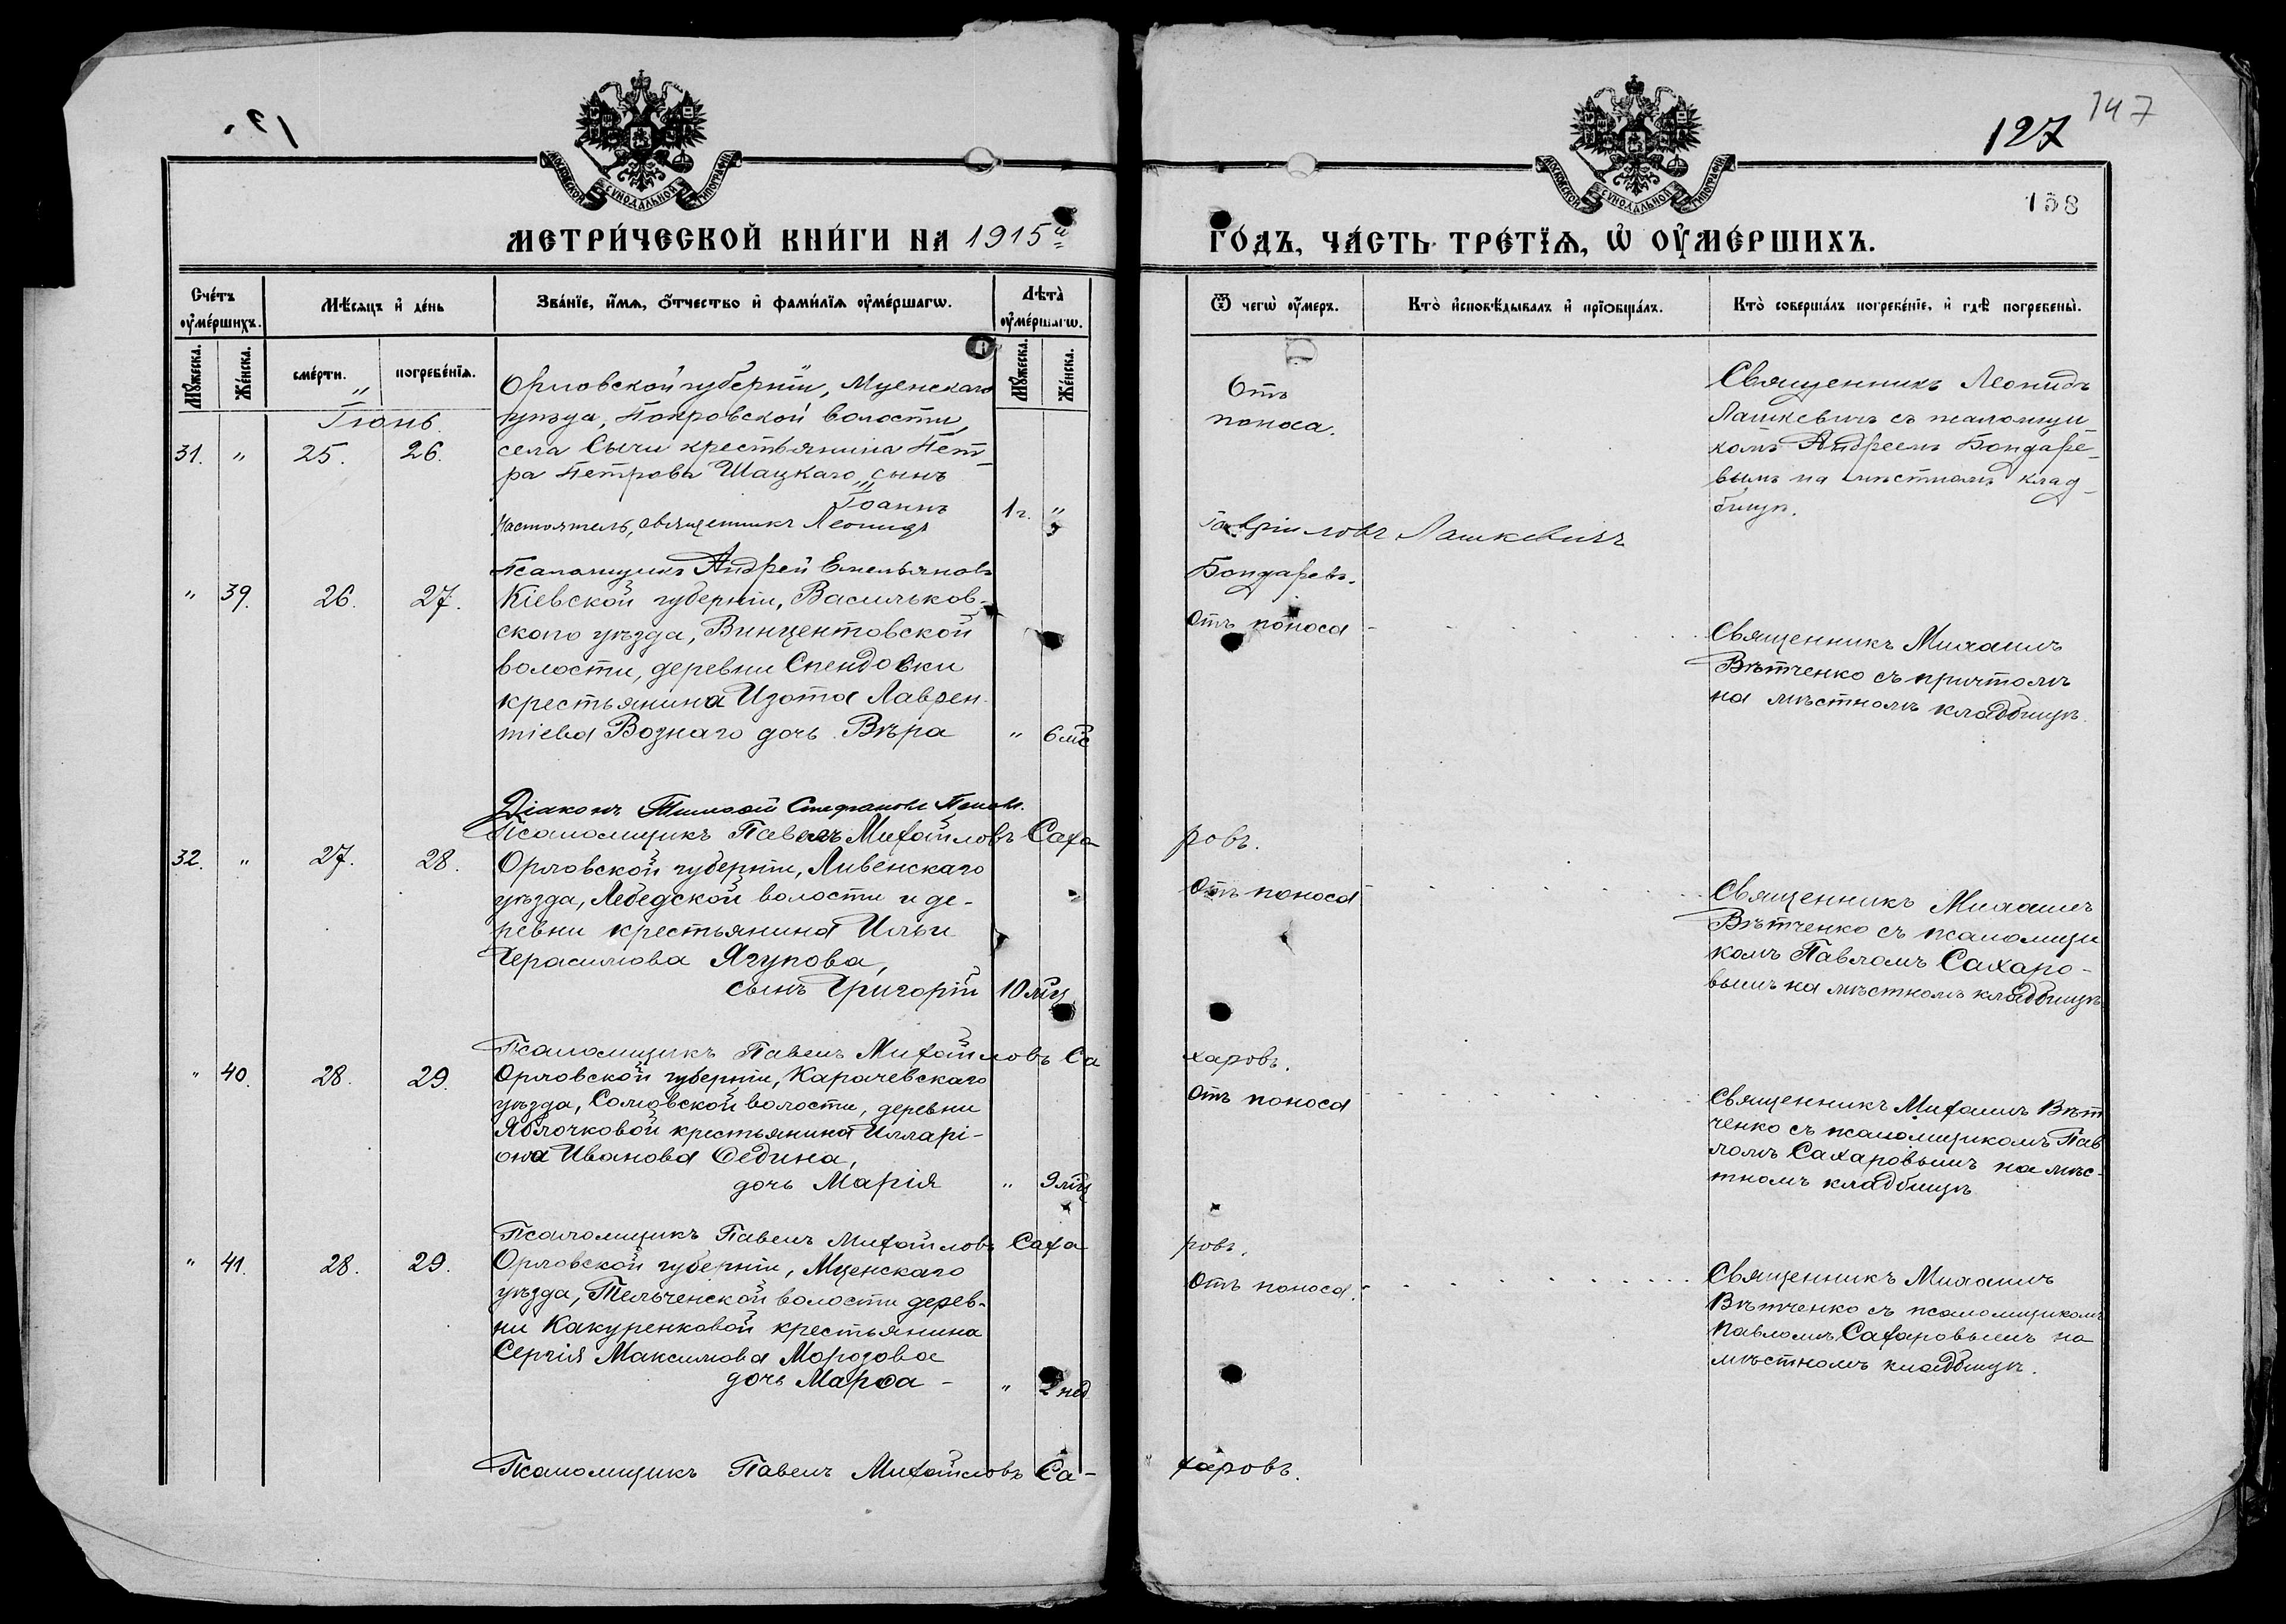 147
127
158
МОСКОВСКОЙ СѴНОДАЛЬНОЙ ТИПОГРАФІИ
МОСКОВСКОЙ СѴНОДАЛЬНОЙ ТИПОГРАФІИ
МЕТРИ́ЧЕСКОЙ КНИ́ГИ НА 1915й
ГО́ДЪ, ЧА́СТЬ ТРЕ́ТЇѦ, Ѡ҆ ОУ҆МЕ́РШИХЪ.
Сче́тъ оу҆ме́ршихъ.
Мѣ́сяцъ и҆ де́нь
Зва́нїе, и҆́мѧ, ѻ҆́тчество и҆ фами́лїѧ оу҆ме́ршагѡ.
Лѣ́та оу҆ме́ршагѡ.
Ѿ чегѡ̀ оу҆́меръ.
Кто̀ и҆сповѣ́дывалъ и҆ прїѻбща́лъ.
Кто̀ соверша́лъ погребе́нїе, и҆ гдѣ̀ погребены̀.
Му́жеска.
Же́нска.
сме́рти.
погребе́нїѧ.
Му́жеска.
Же́нска.
Іюнь.
31. " 25. 26.
Орловской губерніи, Мценскаго
уѣзда, Покровской волости,
села Сычи крестьянина Пет-
ра Петрова Шацкаго, сынъ
Іоаннъ 1 г. "
Отъ
поноса.
Священникъ Леонидъ
Лашкевичъ съ псаломщи-
комъ Андреемъ Бондаре-
вымъ на мѣстномъ клад-
бищѣ.
Настоятель, священникъ Леонидъ Гавріиловъ Лашкевичъ
Псаломщикъ Андрей Емельяновъ Бондаревъ.
" 39. 26. 27.
Кіевской губерніи, Васильков-
скаго уѣзда, Винцентовской
волости, деревни Спендовки
крестьянина Изота Лаврен-
тіева Вознаго дочь Вѣра " 6 мѣс
Отъ поноса
Священникъ Михаилъ
Вѣтченко съ причтомъ
на мѣстномъ кладбищѣ.
Діаконъ Тимофей Стефановъ
Псаломщикъ Павелъ Михайловъ Сахаровъ.
32. " 27. 28.
Орловской губерніи, Ливенскаго
уѣзда, Лебедской волости и де-
ревни крестьянина Ильи
Герасимова Ягупова,
сынъ Григорій 10 мѣц
Отъ поноса
Священникъ Михаилъ
Вѣтченко съ псаломщи
комъ Павломъ Сахаро-
вымъ на мѣстномъ кладбищѣ
Псаломщикъ Павелъ Михайловъ Сахаровъ.
" 40. 28. 29.
Орловской губерніи, Карачевскаго
уѣзда, Сомовской волости, деревни
Яблочковой крестьянина Илларі-
она Иванова Федина,
дочь Марія " 9 мѣц
Отъ поноса
Священникъ Михаилъ Вѣт
ченко съ псаломщикомъ Пав
ломъ Сахаровымъ на мѣс-
тномъ кладбищѣ
Псаломщикъ Павелъ Михайловъ Сахаровъ.
" 41. 28. 29.
Орловской губерніи, Мценскаго
уѣзда, Тельченской волости дерев-
ни Какуренковой крестьянина
Сергія Максимова Морозова
дочь Марѳа - " 2 нед
Отъ поноса.
Священникъ Михаилъ
Вѣтченко съ псаломщикомъ
Павломъ Сахаровымъ на
мѣстномъ кладбищѣ.
Псаломщикъ Павелъ Михайловъ Са-
харовъ.